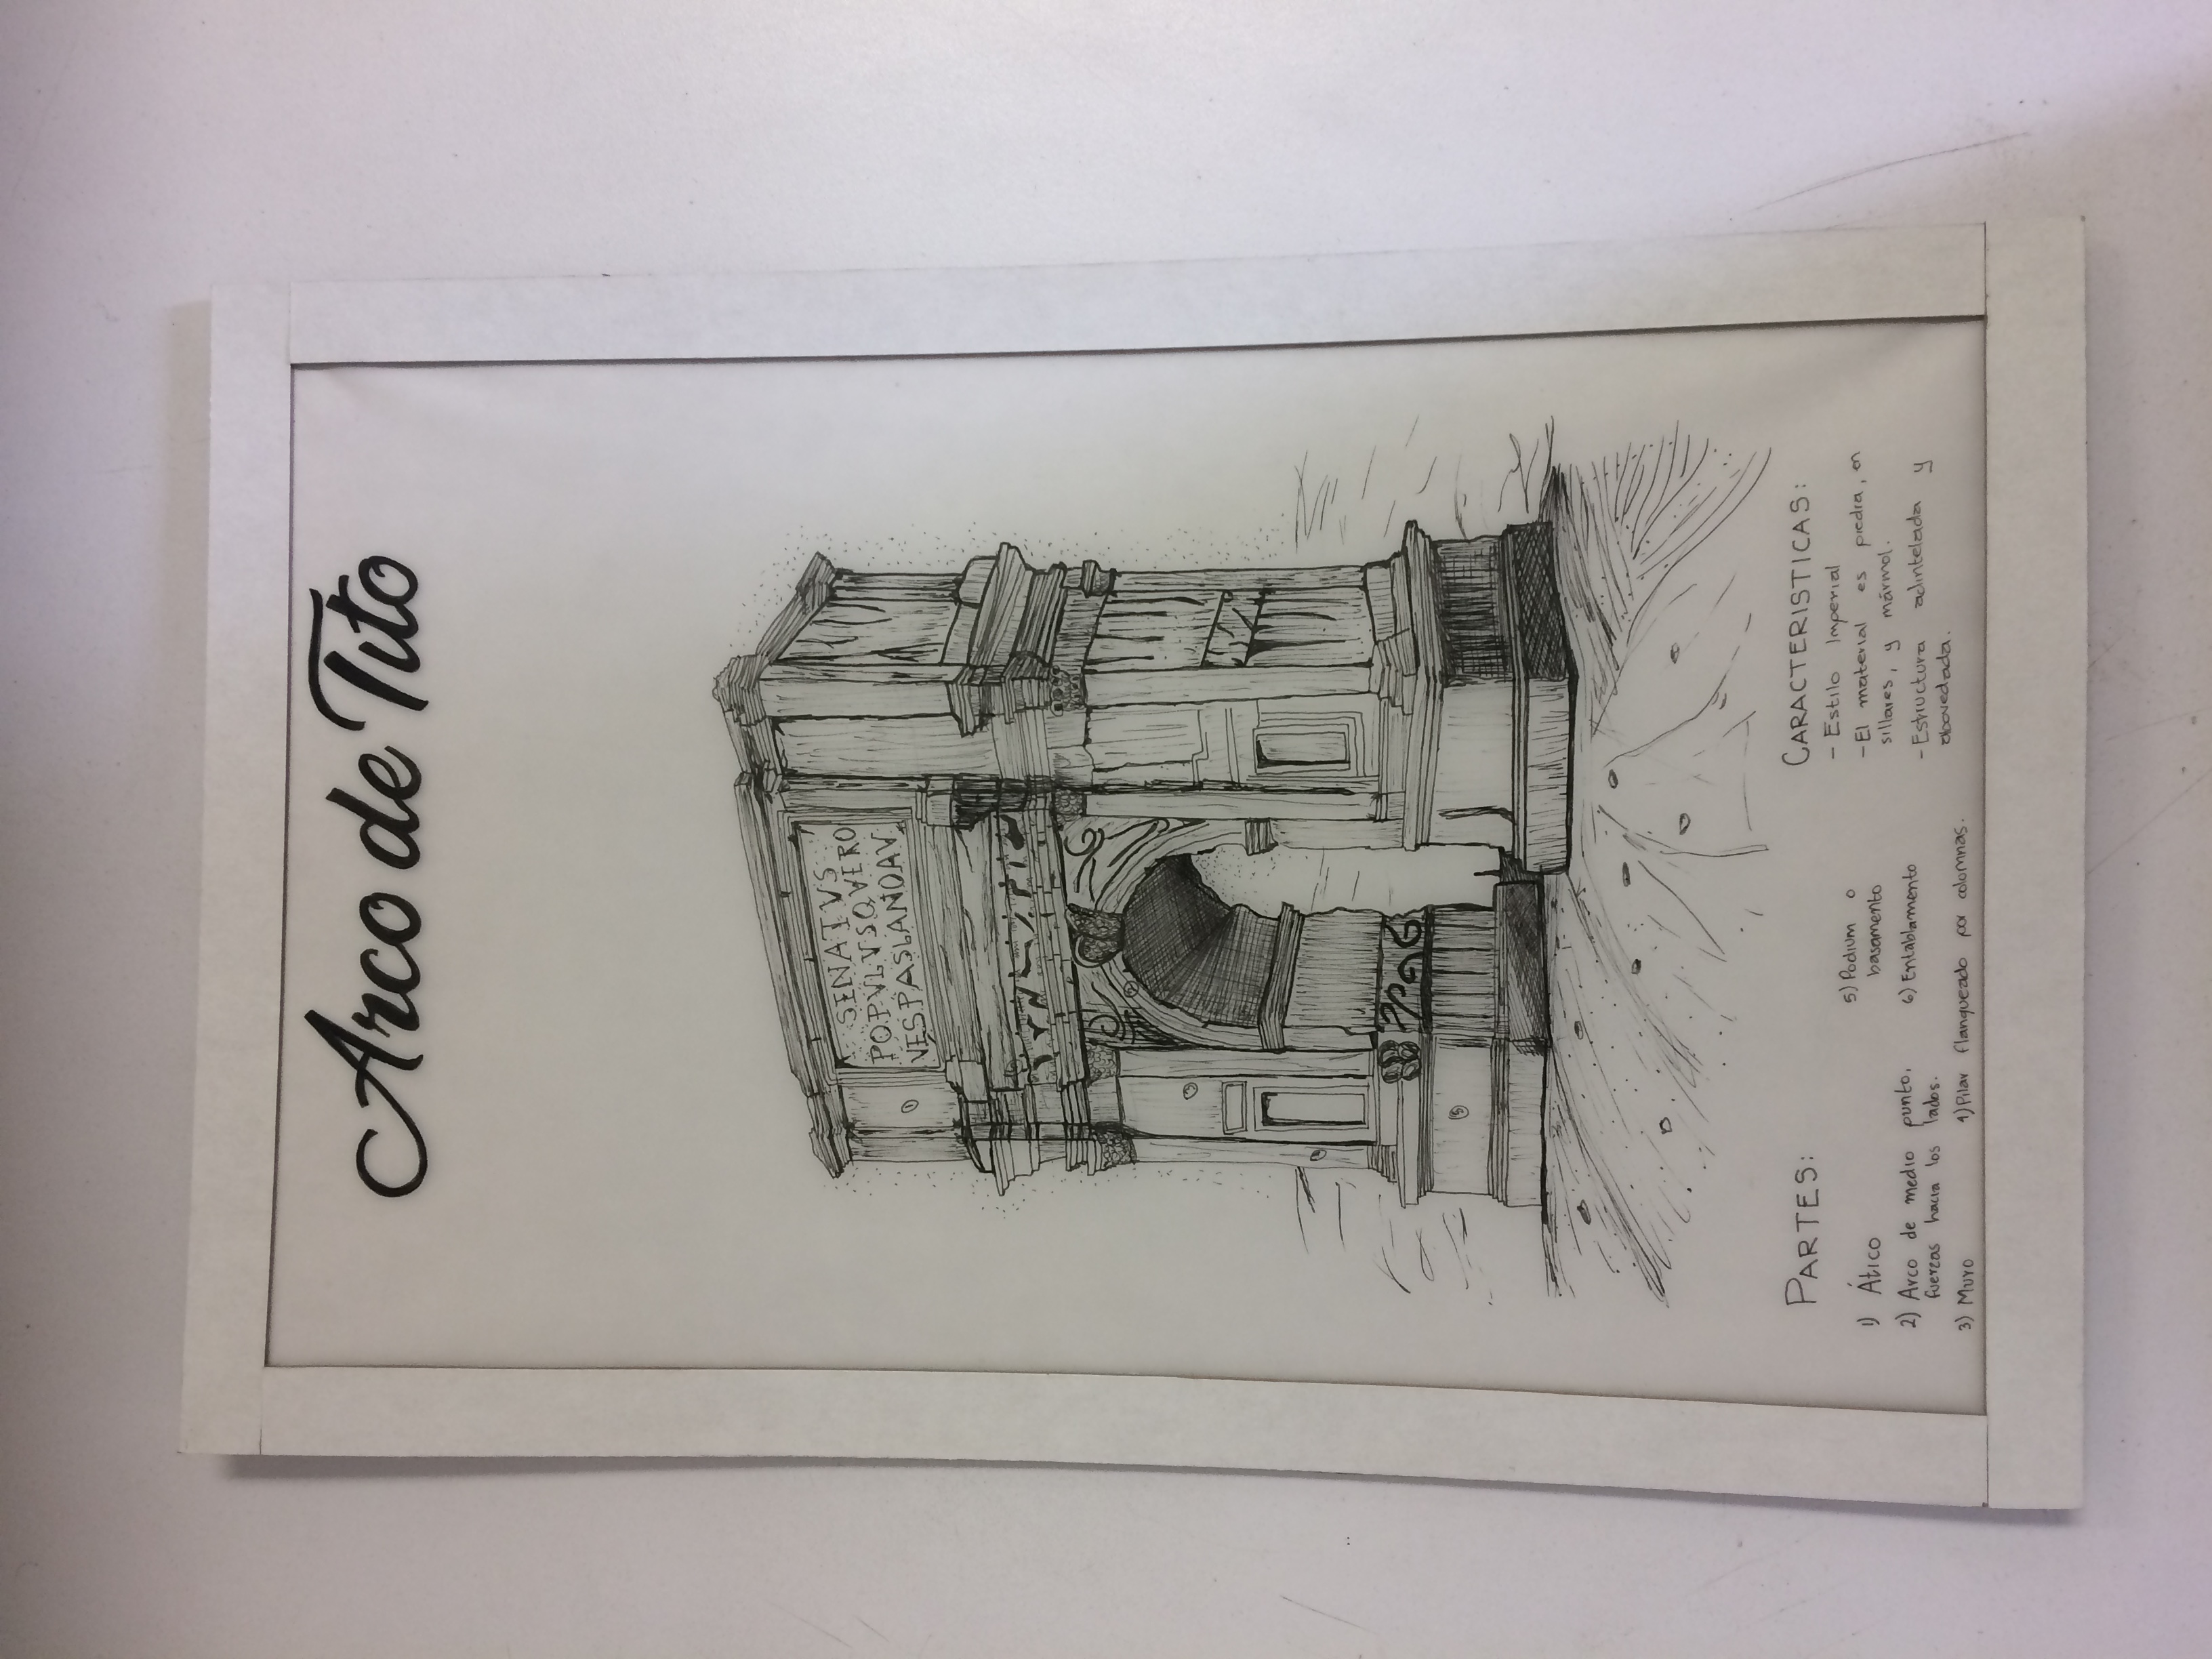 Arco de Tito
SENATVS
POPVLVSQVERO
VESPASIANOAV
PARTES:
1) Ático
2) Arco de medio punto,
fuerzas hacia los lados.
3) Muro
4) Pilar flanqueado por colomnas.
5) Podium o
basamento
6) Entablamento
CARACTERISTICAS:
- Estilo Imperial
- El material es piedra, en
sillares, y mármol.
- Estructura adintelada y
abovedada.